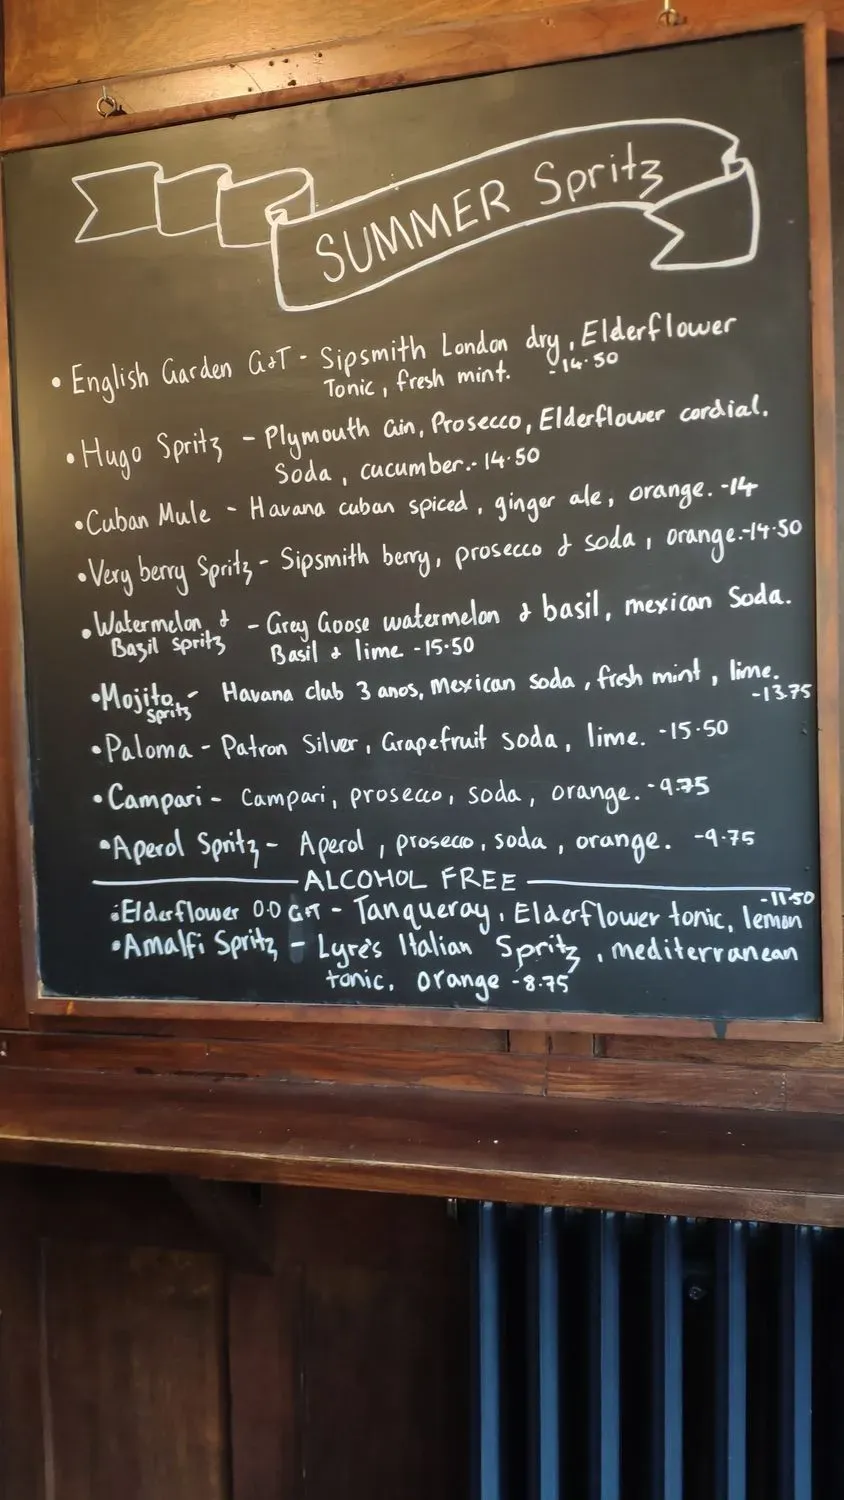 SUMMER Spritz
• English Garden G&T - Sipsmith London dry, Elderflower
Tonic, fresh mint. -14.50
• Hugo Spritz - Plymouth Gin, Prosecco, Elderflower cordial.
Soda, cucumber.- 14.50
• Cuban Mule - Havana cuban spiced, ginger ale, orange. -14
• Very berry Spritz - Sipsmith berry, prosecco & soda, orange.-14.50
• Watermelon & - Grey Goose watermelon & basil, mexican Soda.
Bazil spritz Basil & lime -15.50
• Mojito - Havana club 3 anos, Mexican soda, fresh mint, lime.
Spritz -13.75
• Paloma - Patron Silver, Grapefruit soda, lime. -15.50
• Campari - Campari, prosecco, soda, orange. -9.75
• Aperol Spritz - Aperol, prosecco, soda, orange. -9.75
ALCOHOL FREE
-11.50
• Elderflower 0.0 G&T - Tanqueray, Elderflower tonic, lemon
• Amalfi Spritz - Lyre's Italian Spritz, mediterranean
tonic, orange -8.75